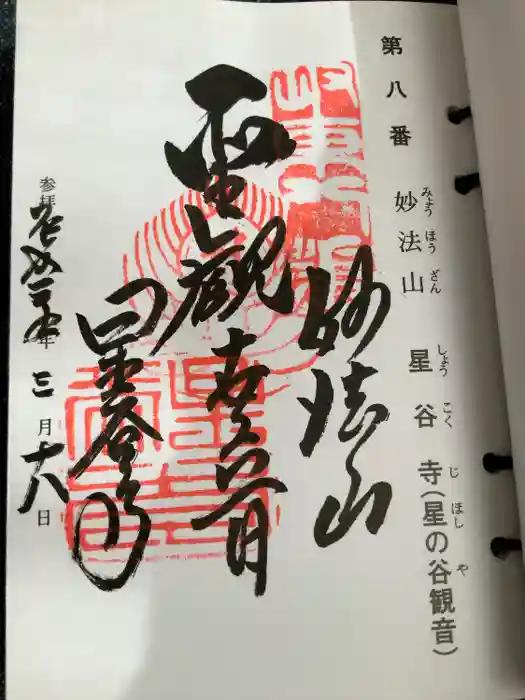 第八番 妙法山 星谷寺(星の谷観音)
みょうほうざん しょうこくじ ほしや
妙法山
聖観世音
星谷寺
参拝 令和二年三月十八日